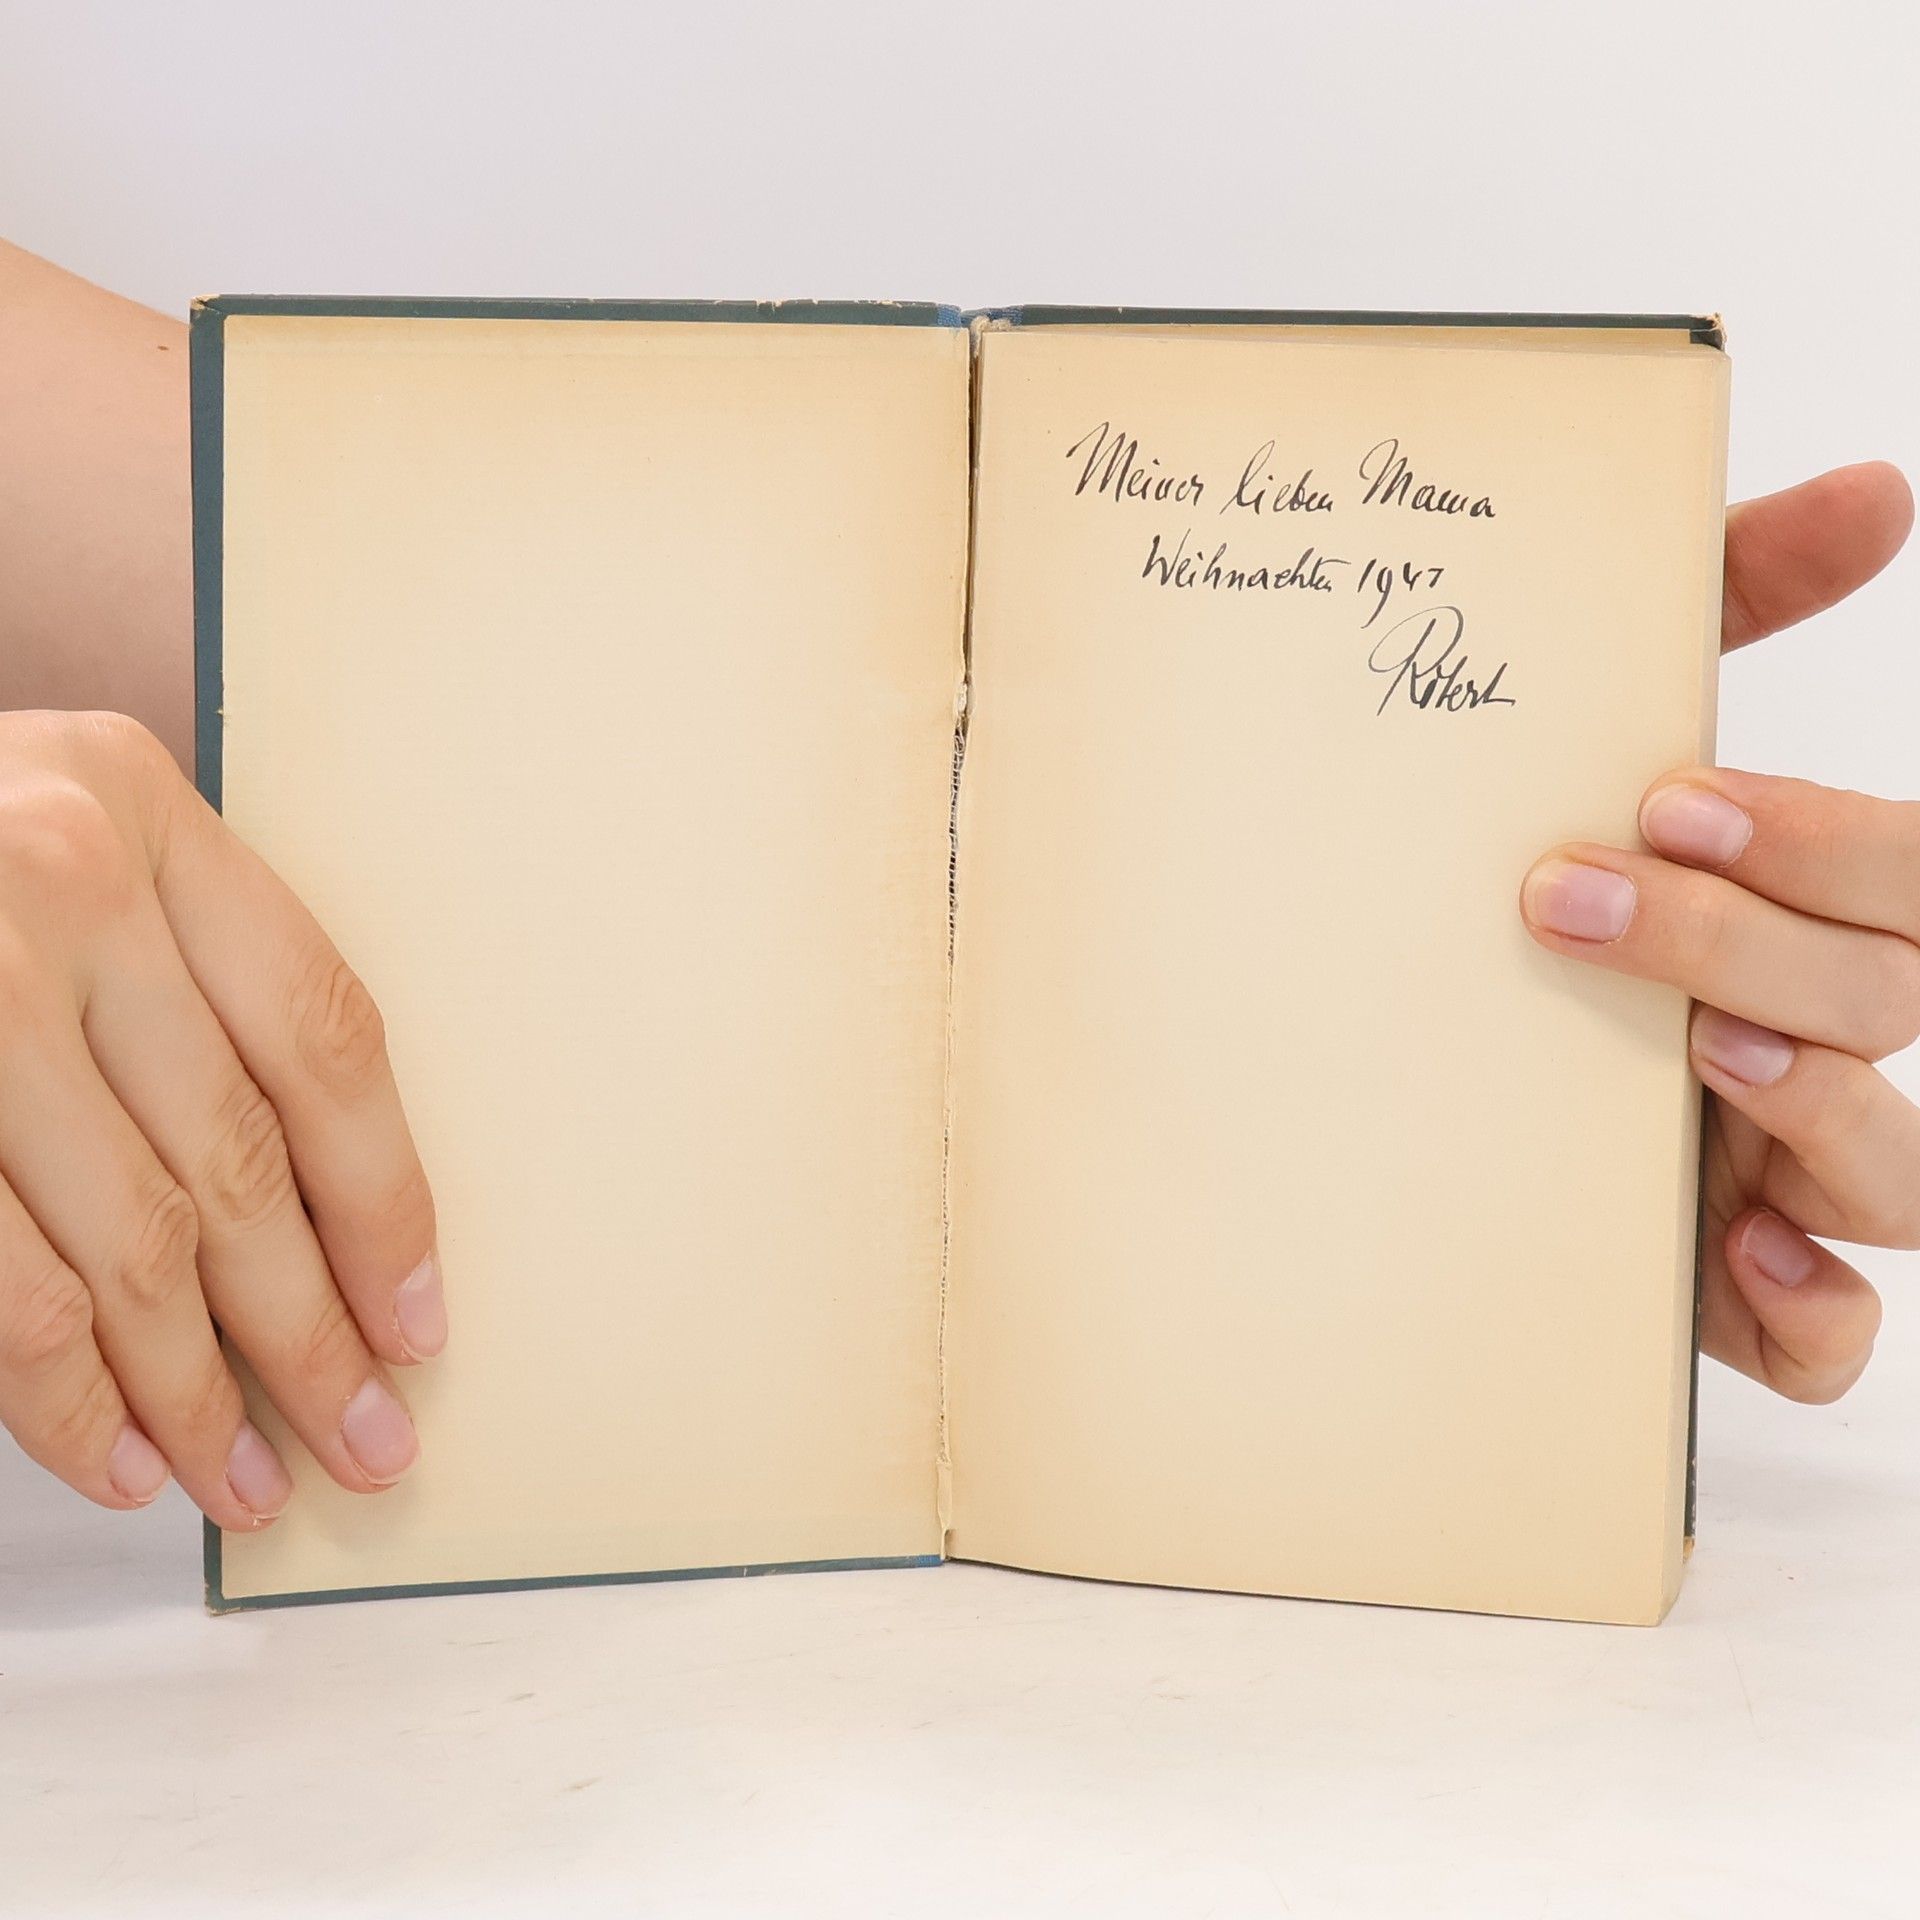 Meiner lieben Mama
Weihnachten 1947
Robert